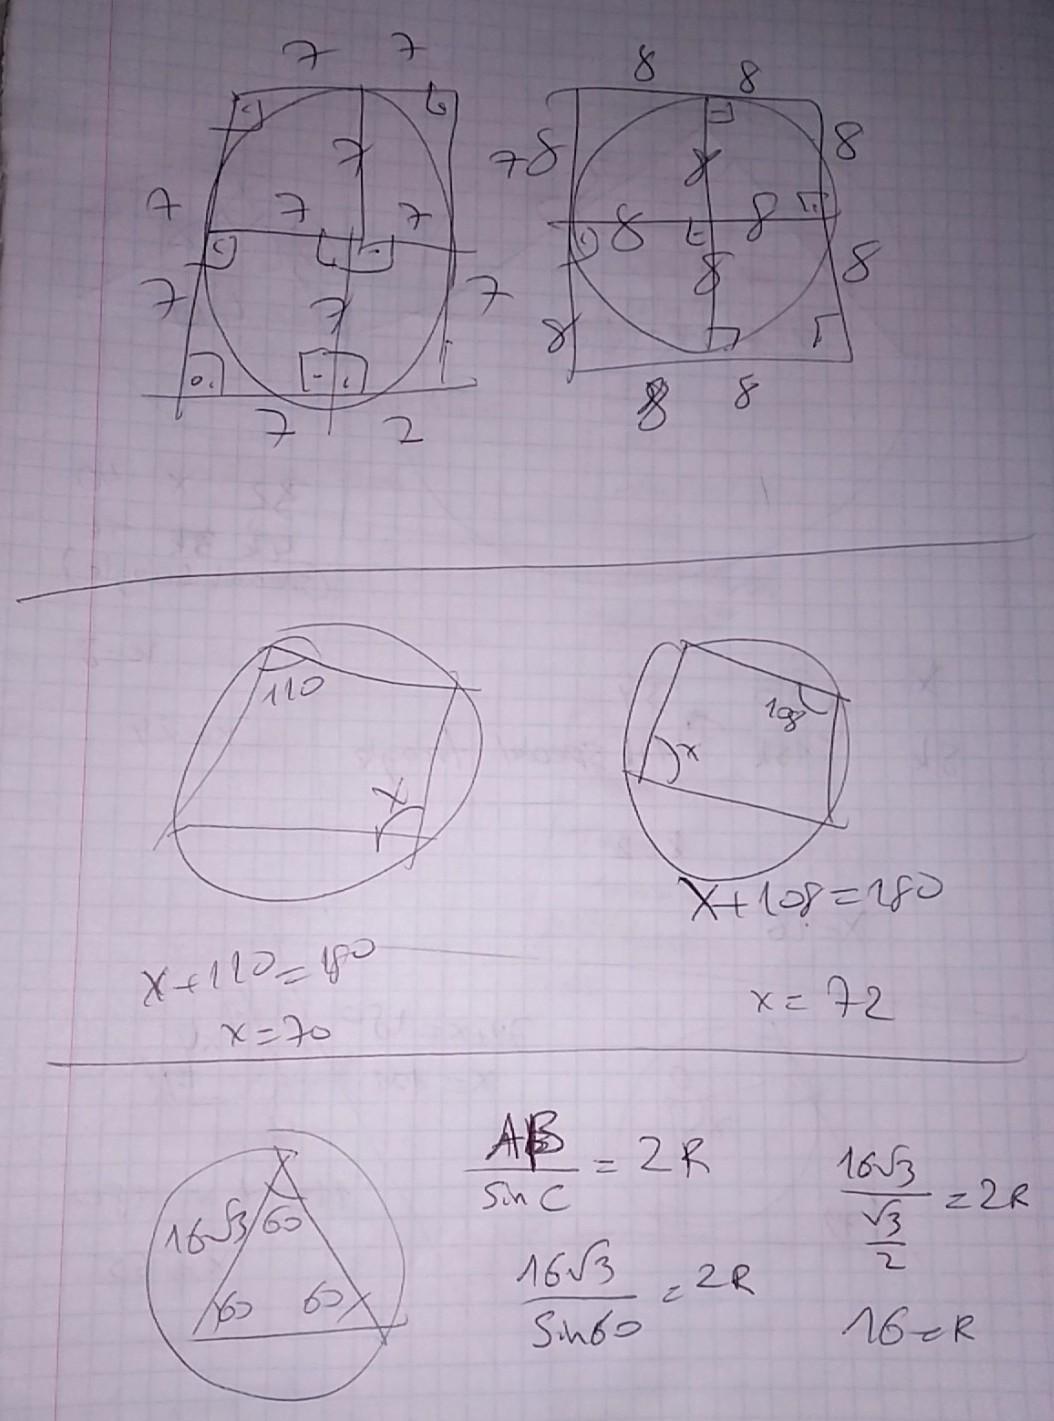 7 7
7 7
7 7
7 7
7
7 2
8 8
7 8 8 8
8 8
8 8
8
8 8
110
x
108
x
x+110=180
x=70
x+108=180
x=72
16√3 60
60 60
AB/sin C = 2R
16√3/sin60 = 2R
16√3/(√3/2) = 2R
16=R